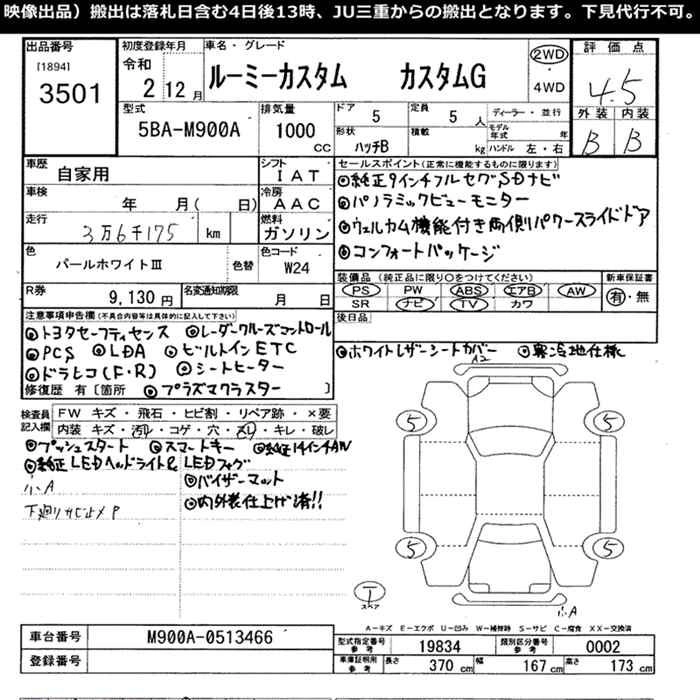 映像出品）搬出は落札日含む4日後13時、JU三重からの搬出となります。下見代行不可。
出品番号 初度登録年月 車名・グレード 評価点
[1894] 令和 2WD
3501 2年12月 ルーミーカスタム カスタムG ・4WD 4.5
外装 内装
型式 排気量 ドア 5 定員 5人 ディーラー・並行 B B
5BA-M900A 1000cc 形状 ハッチB 積載 kg モデル年式 年 ハンドル 左・右
車歴 自家用 シフト IAT セールスポイント(正常に機能するものに限ります)
車検 年 月( 日) 冷房 AAC ◎純正9インチフルセグSDナビ
◎パノラミックビューモニター
走行 3万6千175 km 燃料 ガソリン ◎ウェルカム機能付き両側パワースライドドア
色 パールホワイトⅢ 色替 色コード W24 ◎コンフォートパッケージ
装備品(純正品に限り○をつけてください) 新車保証書
R券 9,130円 名変通知期限 月 日 PS PW ABS エアB AW 有・無
SR ナビ TV カワ
注意事項申告欄(不具合内容は具体的に記入して下さい) 後日品
◎トヨタセーフティセンス ◎レーダークルーズコントロール
◎PCS ◎LDA ◎ビルトインETC ◎ホワイトレザーシートカバー ◎寒冷地仕様
◎ドラレコ(F・R) ◎シートヒーター A2
修復歴 有〔箇所 ◎プラズマクラスター 〕
検査員記入欄 FW キズ・飛石・ヒビ割・リペア跡・×要
内装 キズ・汚れ・コゲ・穴・スレ・キレ・破レ
◎プッシュスタート ◎スマートキー ◎純正14インチAW
◎純正LEDヘッドライト&LEDフォグ
小A ◎バイザーマット
下廻りサビ止メP ◎内外装仕上げ済!!
5 5
5 5
T スペア 小A
A－キズ E－エクボ U－凹み W－補修跡 S－サビ C－腐食 XX－交換済
車台番号 M900A-0513466 型式指定番号 参考 19834 類別区分番号 参考 0002
登録番号 車庫証明用 参考 長さ 370cm 幅 167cm 高さ 173cm